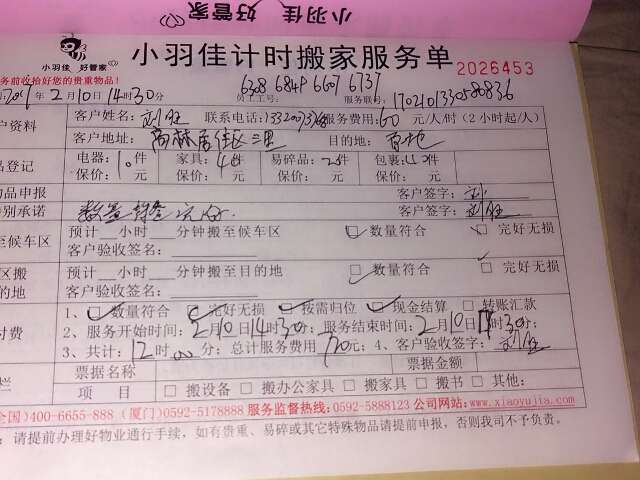 小羽佳 好管家
小羽佳 好管家
小羽佳计时搬家服务单
2026453
务前收拾好您的贵重物品!
2月10日14时30分
员工工号: 6308 6849 6607 6737
服务联号:
客户资料
客户姓名: 刘旺 联系电话: 服务费用: 60 元/人/时(2小时起/人)
客户地址: 目的地:
品登记
电器: 10件 家具: 4件 易碎品: 2件 包裹: 件
保价: 元 保价: 元 保价: 元 保价: 元
物品申报 客户签字: 刘
特别承诺 客户签字: 刘旺
至候车区
预计 小时 分钟搬至候车区 数量符合 完好无损
客户验收签名:
区搬
的地
预计 小时 分钟搬至目的地 数量符合 完好无损
客户验收签名:
付费
1、 数量符合 完好无损 按需归位 现金结算 转账汇款
2、服务开始时间: 2月10日14时30分; 服务结束时间: 2月10日17时30分;
3、共计: 12时00分; 总计服务费用 720元; 4、客户验收签字: 刘旺
票据名称 票据金额
栏
项 目 搬设备 搬办公家具 搬家具 搬书 其他:
全国)400-6655-888 (厦门)0592-5178888 服务监督热线:0592-5888123 公司网站:www.xiaoyujia.com
: 请提前办理好物业通行手续, 如有贵重、易碎或其它特殊物品请提前申报, 否则我司不予负责。